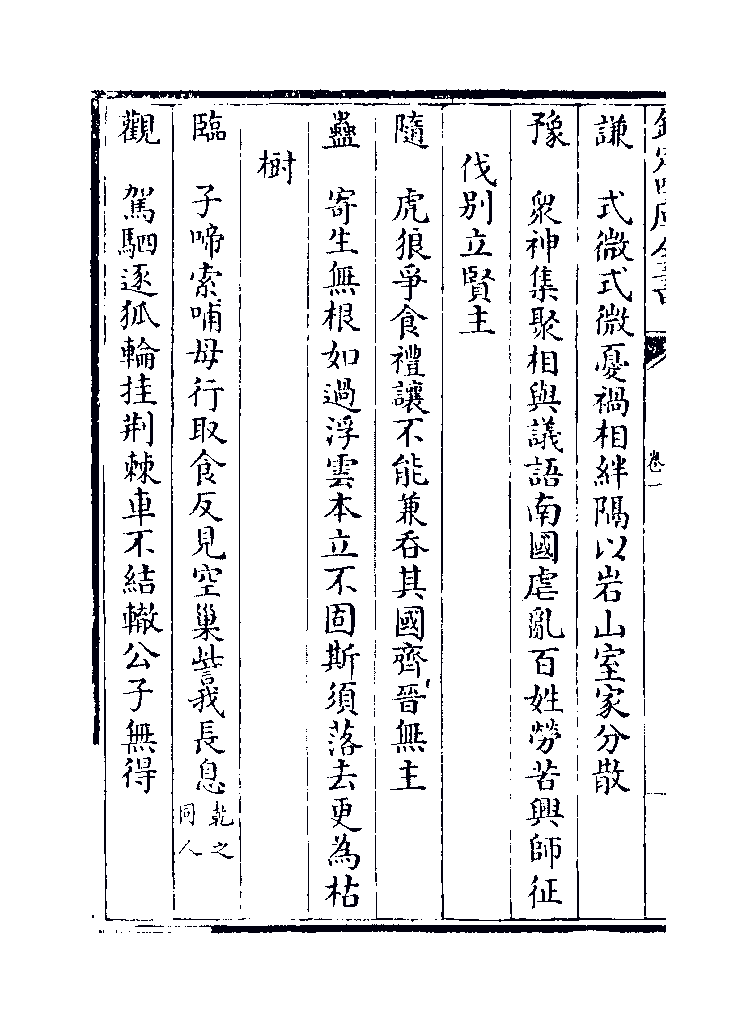 欽定四庫全書
卷一
謙　式微式微憂禍相絆隔以岩山室家分散
豫　衆神集聚相與議語南國虐亂百姓勞苦興師征
伐别立賢主
隨　虎狼爭食禮讓不能兼吞其國齊晉無主
蠱　寄生無根如過浮雲本立不固斯須落去更為枯
樹
臨　子啼索哺母行取食反見空巢訾我長息乾之同人
觀　駕駟逐狐輪挂荆棘車不結轍公子無得